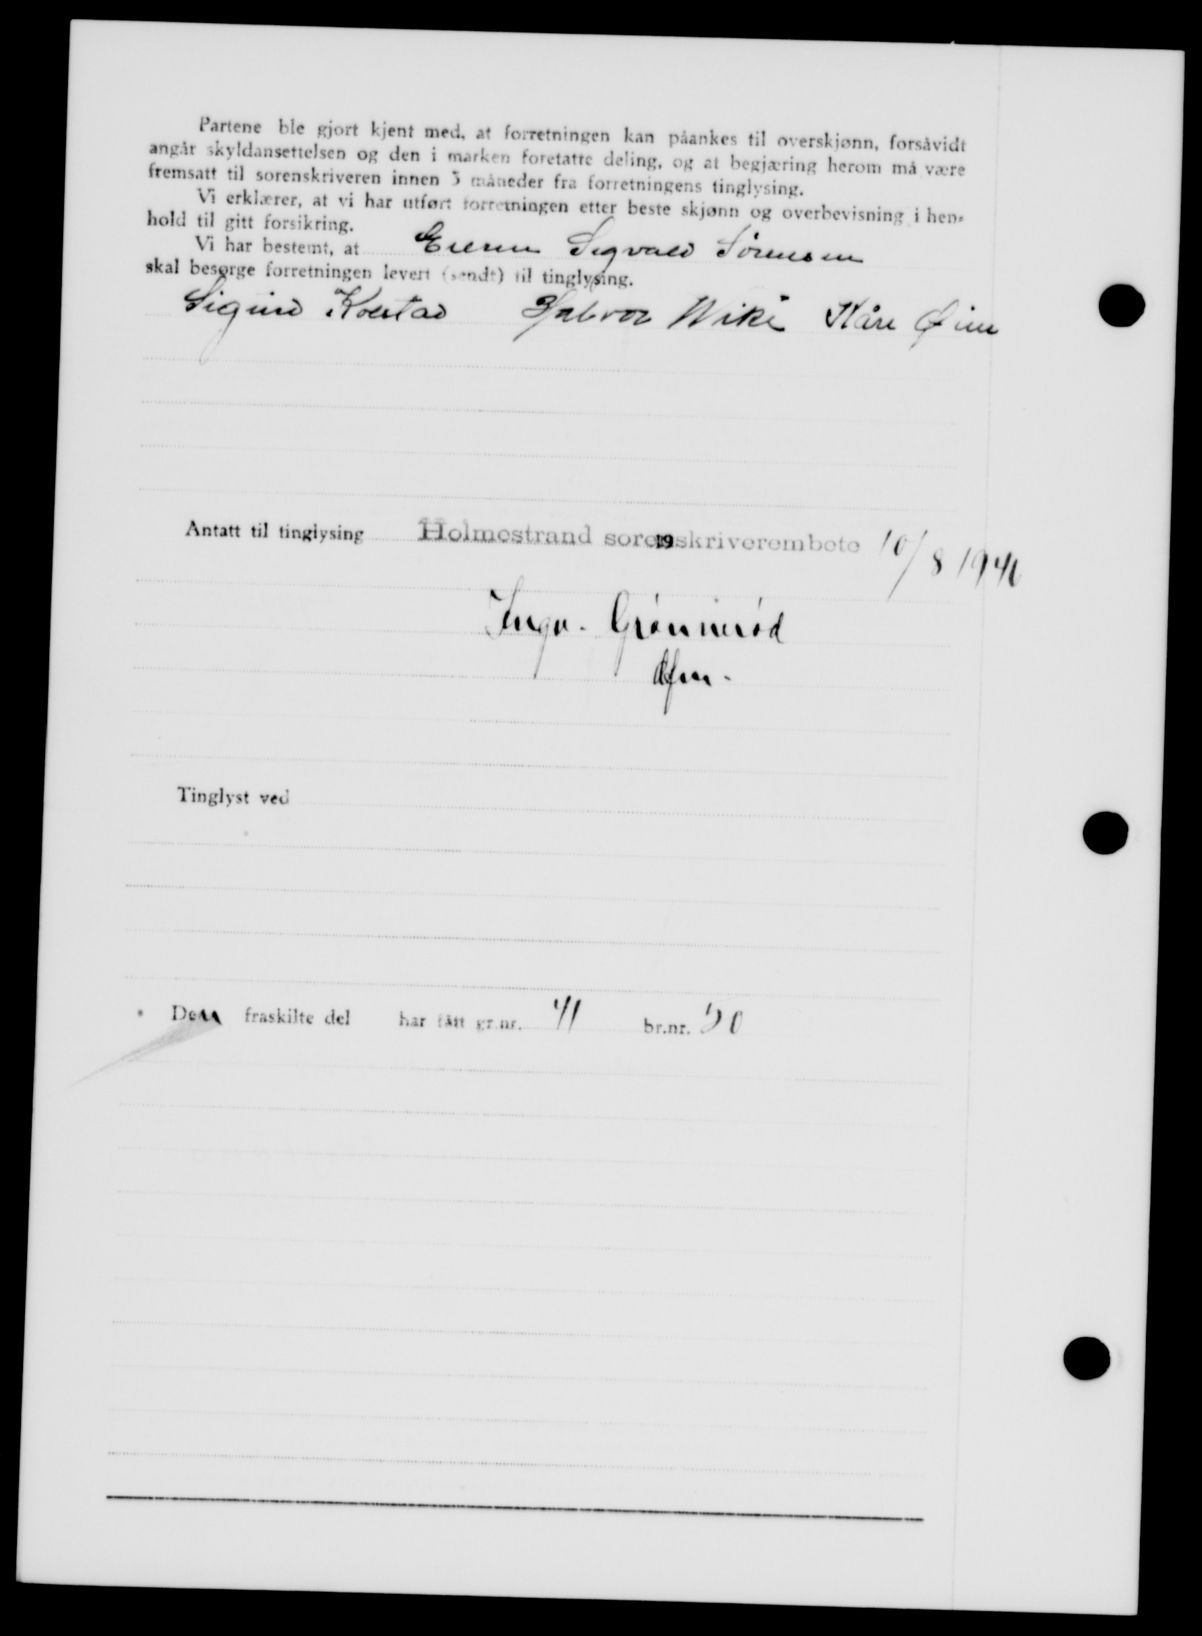 Partene ble gjort kjent med, at forretningen kan påankes til overskjønn, forsåvidt
angår skyldansettelsen og den i marken foretatte deling, og at begjæring herom må være
fremsatt til sorenskriveren innen 3 måneder fra forretningens tinglysing.
Vi erklærer, at vi har utført forretningen etter beste skjønn og overbevisning i hen-
hold til gitt forsikring.
Vi har bestemt, at Sigvald Sørensen
skal besørge forretningen levert (sendt) til tinglysing.
Sigurd Kolstad Halvor Wike Kåre
Antatt til tinglysing Holmestrand sorenskriverembete 19 10/8 1946
Inga. Grønnerød
Tinglyst ved
Den fraskilte del har fått gr.nr. 41 br.nr. 50